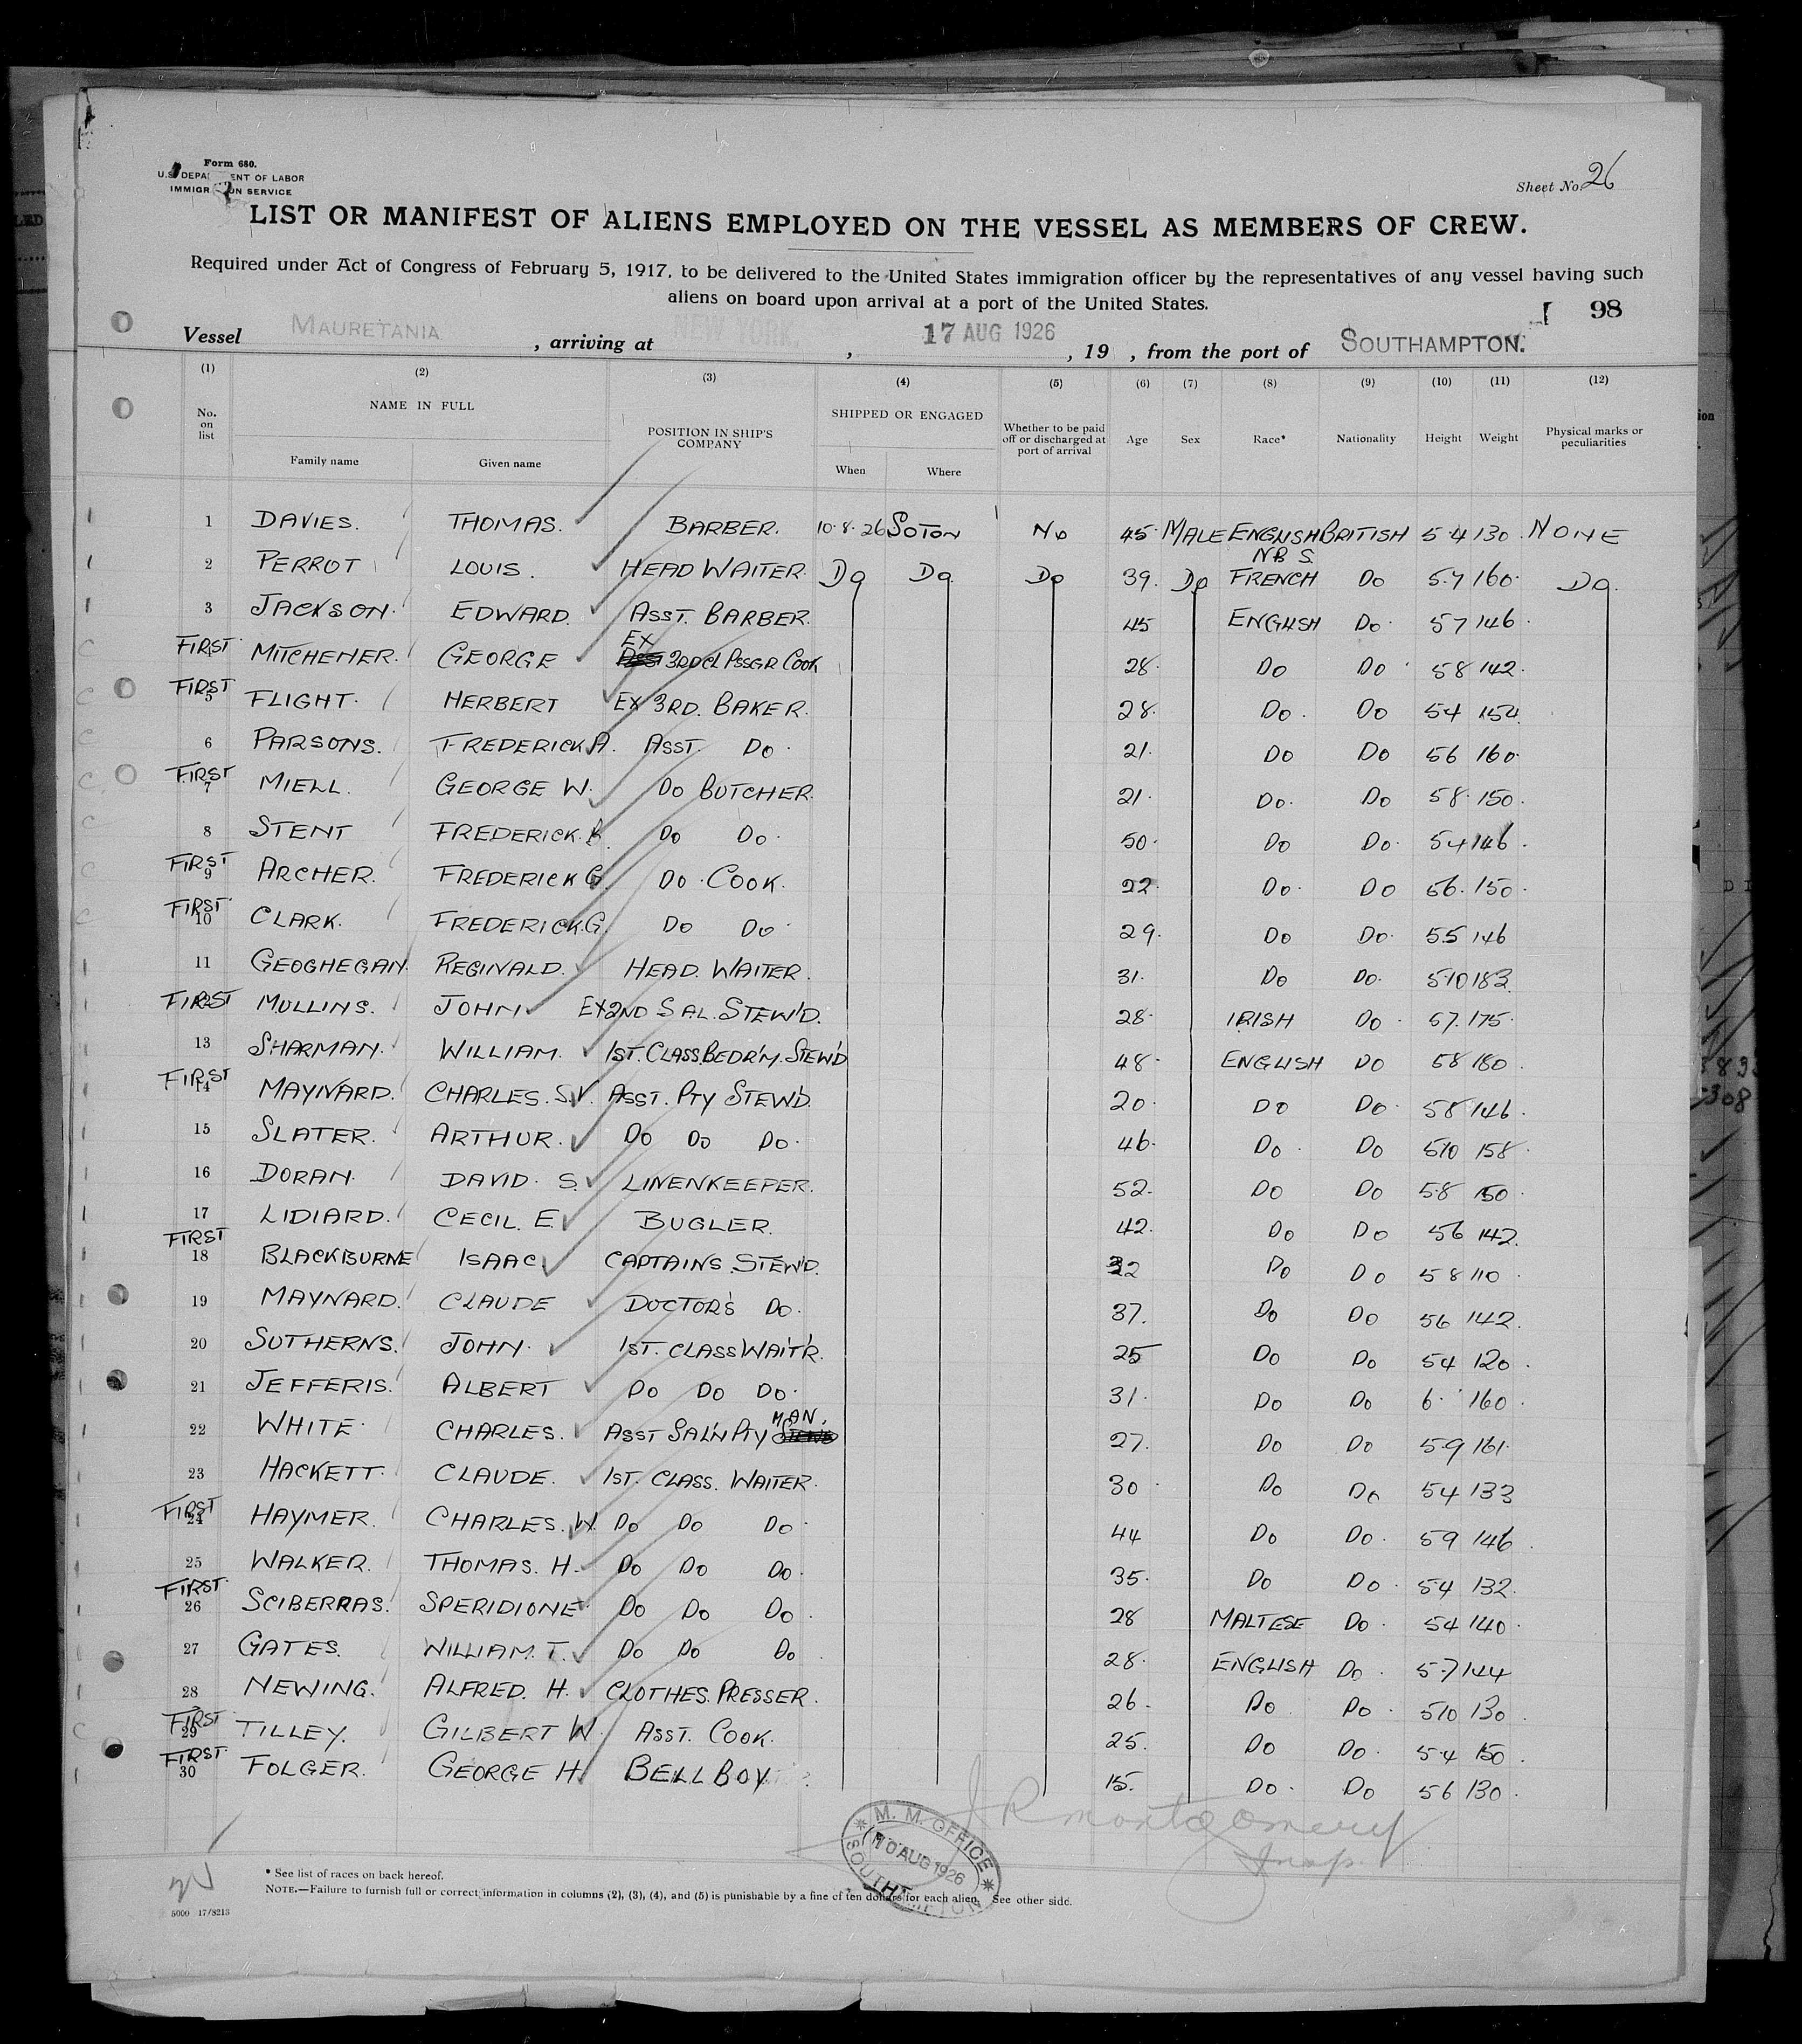 Form 680.
U.S. DEPA ENT OF LABOR
IMMIGR ON SERVICE
Sheet No. 26
LIST OR MANIFEST OF ALIENS EMPLOYED ON THE VESSEL AS MEMBERS OF CREW.
Required under Act of Congress of February 5, 1917, to be delivered to the United States immigration officer by the representatives of any vessel having such
aliens on board upon arrival at a port of the United States.
98
Vessel MAURETANIA, arriving at NEW YORK, 17 AUG 1926, 19 , from the port of SOUTHAMPTON.
(1) (2) (3) (4) (5) (6) (7) (8) (9) (10) (11) (12)
No. on list NAME IN FULL POSITION IN SHIP'S COMPANY SHIPPED OR ENGAGED Whether to be paid off or discharged at port of arrival Age Sex Race* Nationality Height Weight Physical marks or peculiarities
Family name Given name When Where
1 DAVIES. THOMAS. BARBER. 10.8.26 SOTON No 45 MALE ENGLISH BRITISH 5 4 130 NONE
2 PERROT LOUIS. HEAD WAITER Do Do Do 39. Do FRENCH Do 5.7 160 Do.
3 JACKSON. EDWARD. ASST. BARBER. 45 ENGLISH Do. 5 7 146
FIRST MITCHENER. GEORGE EX 3RD CL PSSGR COOK 28. Do Do 5 8 142
FIRST 5 FLIGHT. HERBERT EX 3RD. BAKER. 28. Do. Do 5 4 154
6 PARSONS. FREDERICK A. ASST. Do. 21. Do Do 5 6 160
FIRST 7 MIELL. GEORGE W. Do BUTCHER. 21. Do. Do 5 8. 150.
8 STENT FREDERICK. Do Do. 50. Do Do. 5 4 146.
FIRST 9 ARCHER. FREDERICK G. Do. COOK. 22. Do. Do 5 6. 150.
FIRST 10 CLARK. FREDERICK.G. Do Do. 29. Do Do. 5.5 146
11 GEOGHEGAN. REGINALD. HEAD. WAITER. 31. Do Do. 5 10 183.
FIRST MULLINS. JOHN EX 2ND SAL. STEW'D. 28. IRISH Do. 5 7. 175.
13 SHARMAN. WILLIAM. 1ST. CLASS. BEDR'M. STEW'D 48. ENGLISH Do 5 8 180.
FIRST 14 MAYNARD. CHARLES. S.V. ASST. PTY STEW'D. 20. Do Do. 5 8 146.
15 SLATER. ARTHUR. Do Do Do. 46. Do. Do 5 10 158.
16 DORAN. DAVID. S. LINENKEEPER. 52. Do Do 5.8 150.
17 LIDIARD. CECIL. E. BUGLER. 42. Do Do 5 6 142.
FIRST 18 BLACKBURNE ISAAC CAPTAINS. STEW'D. 22 Do Do 5 8 110.
19 MAYNARD. CLAUDE DOCTOR'S Do. 37. Do Do 5 6 142.
20 SUTHERNS. JOHN. 1ST. CLASS WAIT'R. 25 Do Do 5 4 120.
21 JEFFERIS. ALBERT Do Do Do. 31. Do Do 6. 160.
22 WHITE. CHARLES. ASST SAL'N PTY MAN. 27. Do Do 5.9 161.
23 HACKETT. CLAUDE. 1ST. CLASS. WAITER. 30 Do Do 5 4 133
FIRST 24 HAYMER. CHARLES. W. Do Do Do. 44 Do Do. 5 9 146.
25 WALKER. THOMAS. H. Do Do Do. 35. Do Do. 5 4 132.
FIRST. 26 SCIBERRAS. SPERIDIONE Do Do Do. 28 MALTESE Do. 5 4 140.
27 GATES. WILLIAM. T. Do Do Do. 28. ENGLISH Do. 5.7 144
28 NEWING. ALFRED. H. CLOTHES. PRESSER. 26. Do. Do. 5 10 130.
FIRST 29 TILLEY. GILBERT W. ASST. COOK. 25. Do Do. 5.4 150.
FIRST. 30 FOLGER. GEORGE H. BELL BOY 15. Do. Do 5 6 130.
JR Montgomery
Insp.
M. M. OFFICE
10 AUG 1926
SOUTHAMPTON
* See list of races on back hereof.
NOTE.—Failure to furnish full or correct information in columns (2), (3), (4), and (5) is punishable by a fine of ten dollars for each alien. See other side.
5000 17/8213